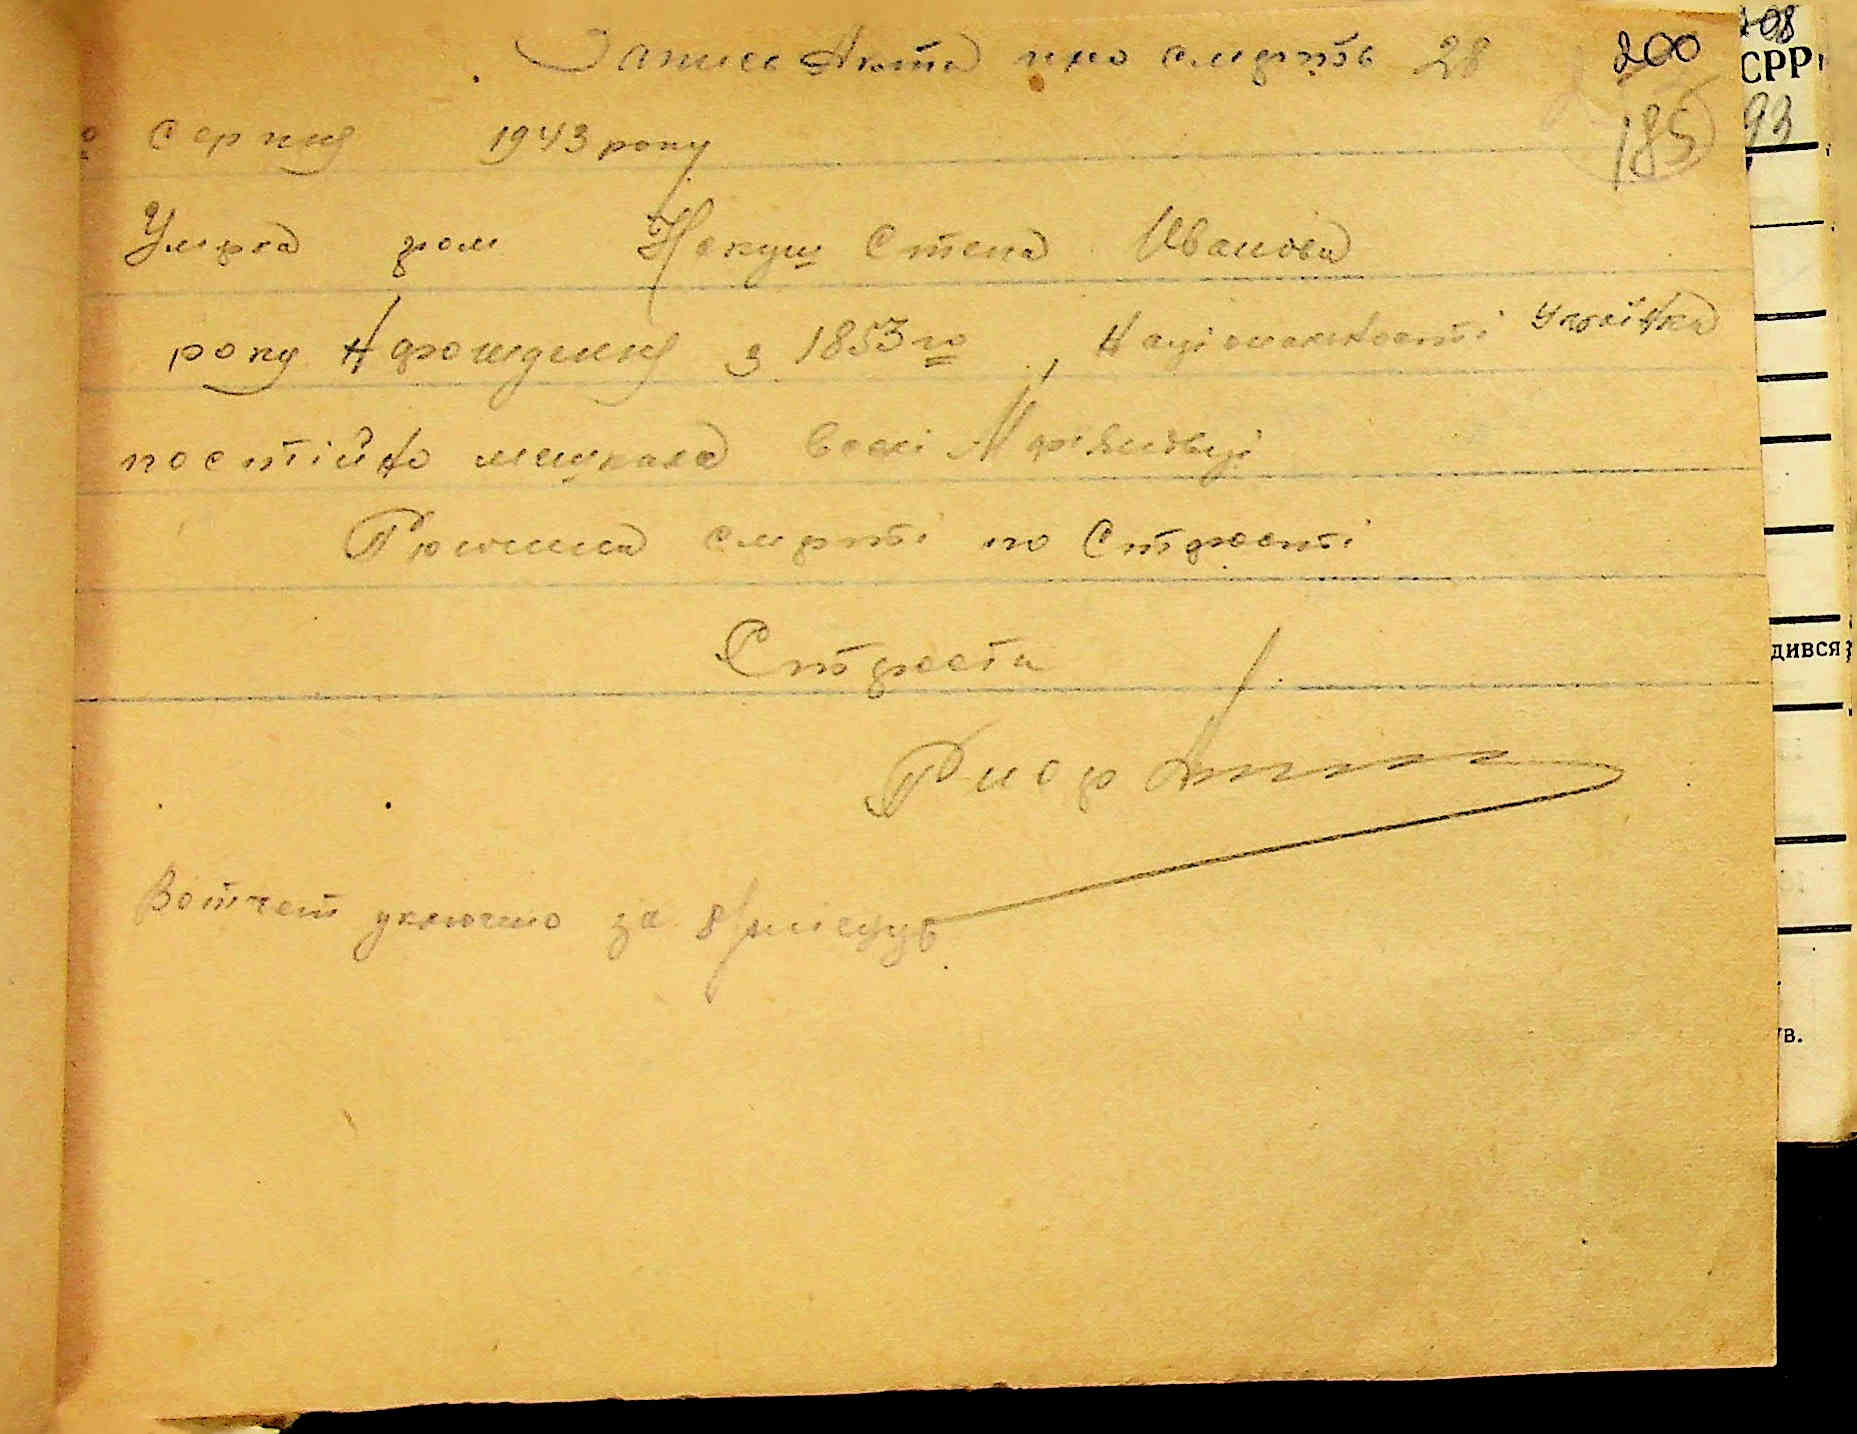 Запись Акта про смерть 28
200
185
серпня 1943 року
Умерла гром Степа Иванова
року Нарождения з 1853го, Національності Українка
постійно мешкала в селі
Причина смерті по Старості
Староста
В отчет уключено за 8/місяць
08
СРР
93
дився
ув.